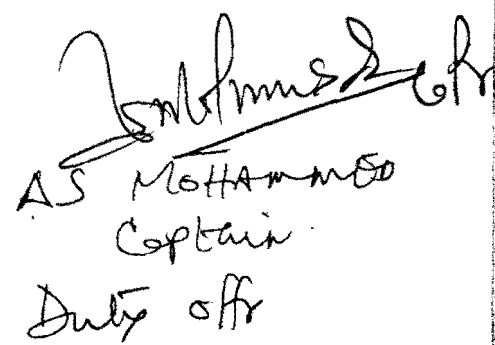 AS MOHAMMED
Captain.
Duty offr